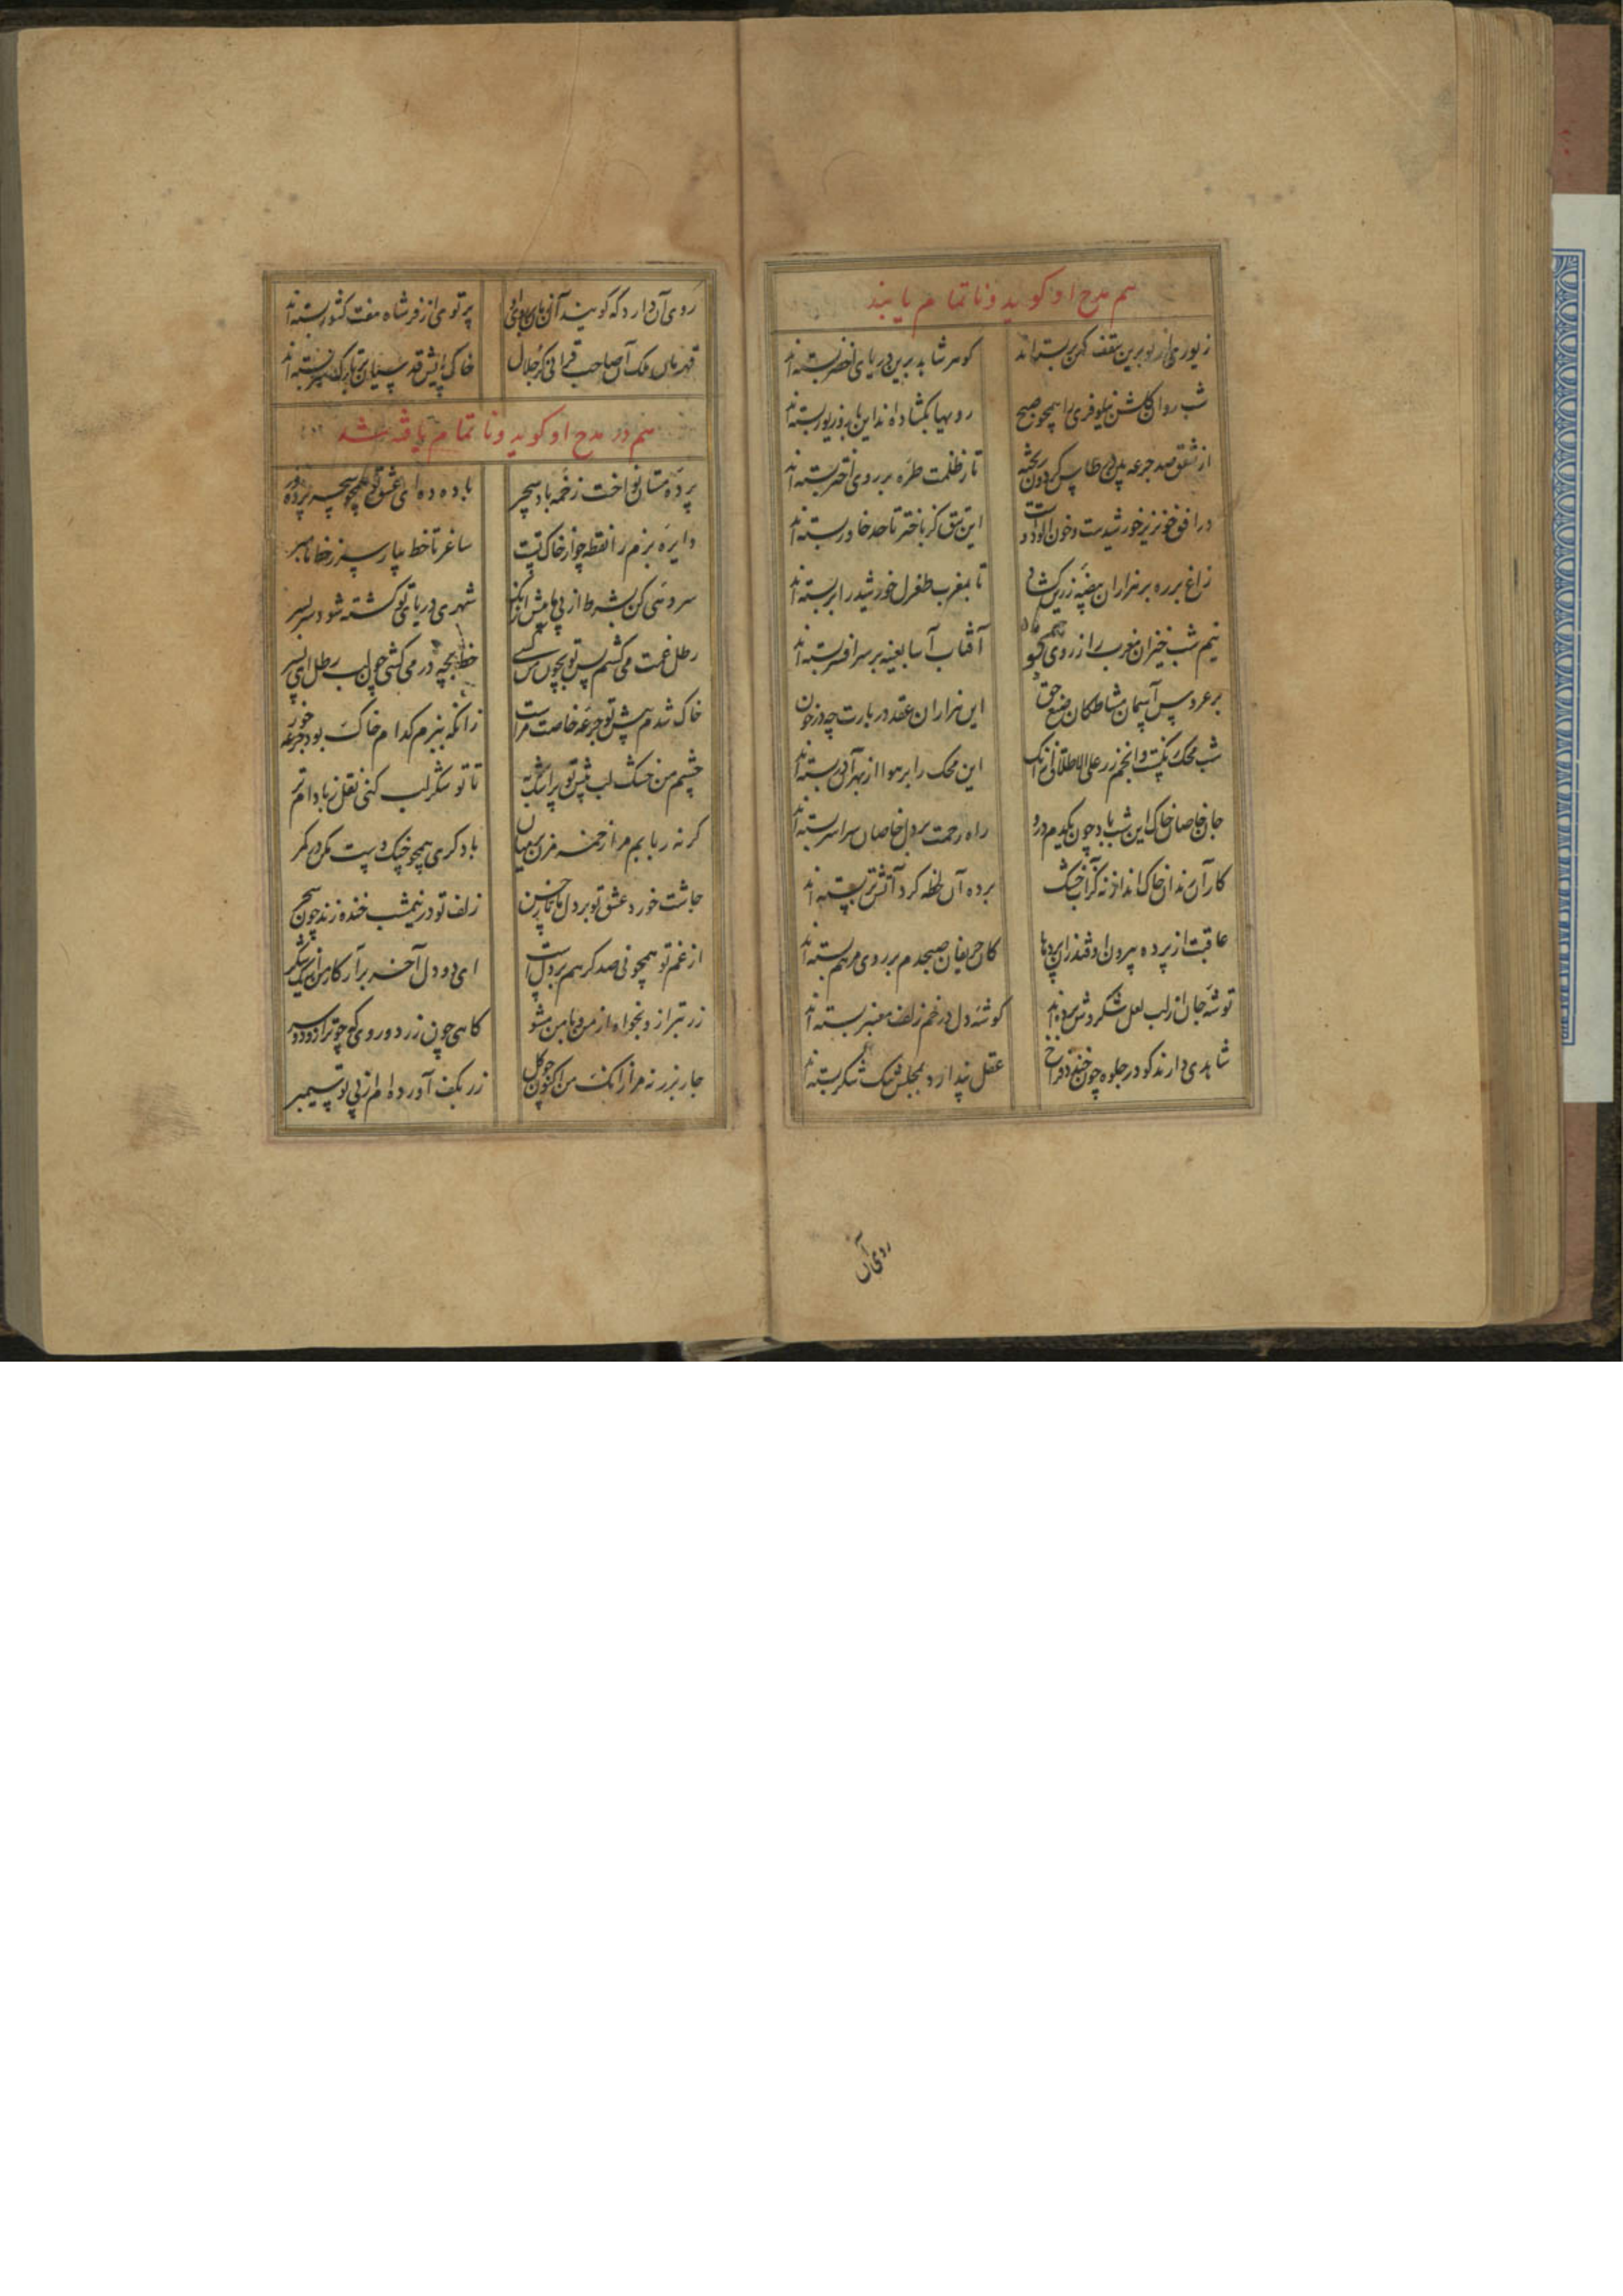 هم مدح او کوید و ناتمام یابند
زیوری از نو برین سقف کهن بربسته‌اند
کوهر شاید برین دریای اخضر بسته‌اند
شب روان کلشن نیلوفری را همچو صبح
رویها بکشاده‌اند این بار و زیور بسته‌اند
از شفق صد جرعه بر طاس کردون ریخته
تا ز ظلمت طره بر روی اختر بسته‌اند
در افق خونریز خورشیدست و خون آلود
این تتق کز باختر تا حد خاور بسته‌اند
زاغ بر ره بر هزاران بیضه زرین کشاد
تا بمغرب طغرل خورشید را پر بسته‌اند
نیم شب خیزان مغرب را ز روی
آفتاب آسا بعینه بر سر افسر بسته‌اند
بر عروس آسمان مشاطکان صنع حق
این هزاران عقد در بارت چه درخون
شب محک رنکست و انجم زر علی الاطلاق زانک
این محک را بر هوا از بهر آن زر بسته‌اند
جان خاصان خاک این شب باد چون یکدم درو
راه رحمت بر دل خاصان سراسر بسته‌اند
کار آن رندان خاک انداز نه کز آب خشک
برده آن لحظه کرد آتش تر بسته‌اند
عاقبت از پرده بیرون اوفتد راز
کان حریفان صبحدم بر روی مرهم بسته‌اند
توشه جان از لب لعل شکروش برده‌اند
کوشه دل در خم زلف معنبر بسته‌اند
شاهدی دارند کو در جلوه چون خندد فراخ
عقل پندارد بمجلس تنک شکر بسته‌اند
روی آن
روی آن دارد که کویند آن
پرتوی از فر شاه هفت کشور بسته‌اند
قهرمان ملک آن صاحب قرانی کز جلال
خاک پایش قدسیان بر تارک سر بسته‌اند
هم در مدح او کوید و ناتمام یافته شد
پرده مستان نواخت زخمه باد سحر
باده ده ای عشق تو همچو سحر پرده در
دایره بزم را نقطه چو از خاک تست
ساغر تا خط بیار سر ز خط ما مبر
سرو سهی کن بشرط از پی ما پیش از آنک
شهری در پای تو کشته شود سر بسر
رطل غمت می کشم پس تو بچون من کسی
خط بچه در می کشی چون لب رطل ای پسر
خاک شدم پیش تو جرعه خاصت مراست
زانکه ببزم کدام خاک بود جرعه خور
چشم من خشک لب پیش تو پر اشک
تا تو شکر لب کنی نقل ز بادام تر
کر نه ربابم مرا زخمه مزن بی میان
باد کری همچو خنک دست مکن در کمر
چاشت خورد عشق تو بر دل ما تا چنین
زلف تو در نیمشب خنده زند چون سحر
از غم تو همچو نی صد کرهم بر دل است
ای دو دل آخر برآر کار من از یک شکر
زر تبرا ز و نخواه از من و با من مشو
کاهی چون زر دو روی که چو ترازو دو سر
جار بزر نه مرا زانک من اکنون چو کل
زر بکف آورده‌ام از پی تو سیمبر